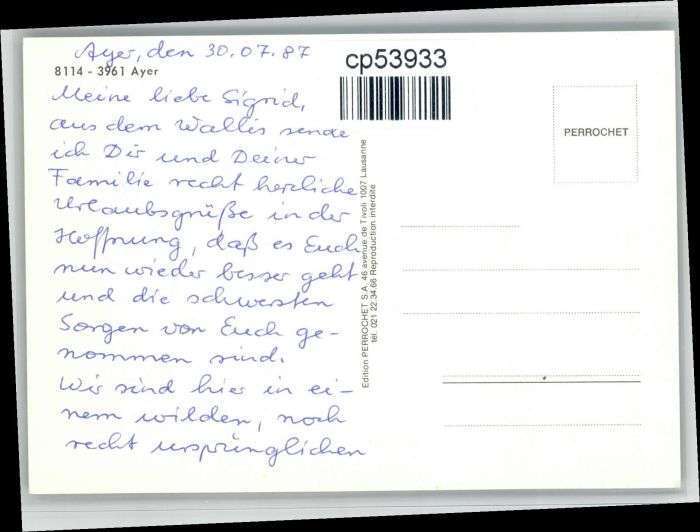 Ayer, den 30.07.87
8114 - 3961 Ayer
Meine liebe Sigrid,
aus dem Wallis sende
ich Dir und Deiner
Familie recht herzliche
Urlaubsgrüße in der
Hoffnung, daß es Euch
nun wieder besser geht
und die schwersten
Sorgen von Euch ge-
nommen sind.
Wir sind hier in ei-
nem wilden, noch
recht ursprünglichen
cp53933
Edition PERROCHET S.A. 46 avenue de Tivoli 1007 Lausanne
tél. 021 22.34.66 Reproduction interdite
PERROCHET